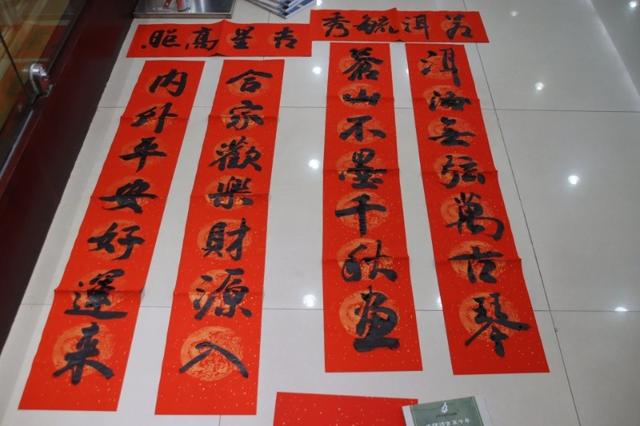 苍洱毓秀
洱海无弦萬古琴
蒼山不墨千秋畫
吉星高照
合家歡樂財源入
内外平安好運来